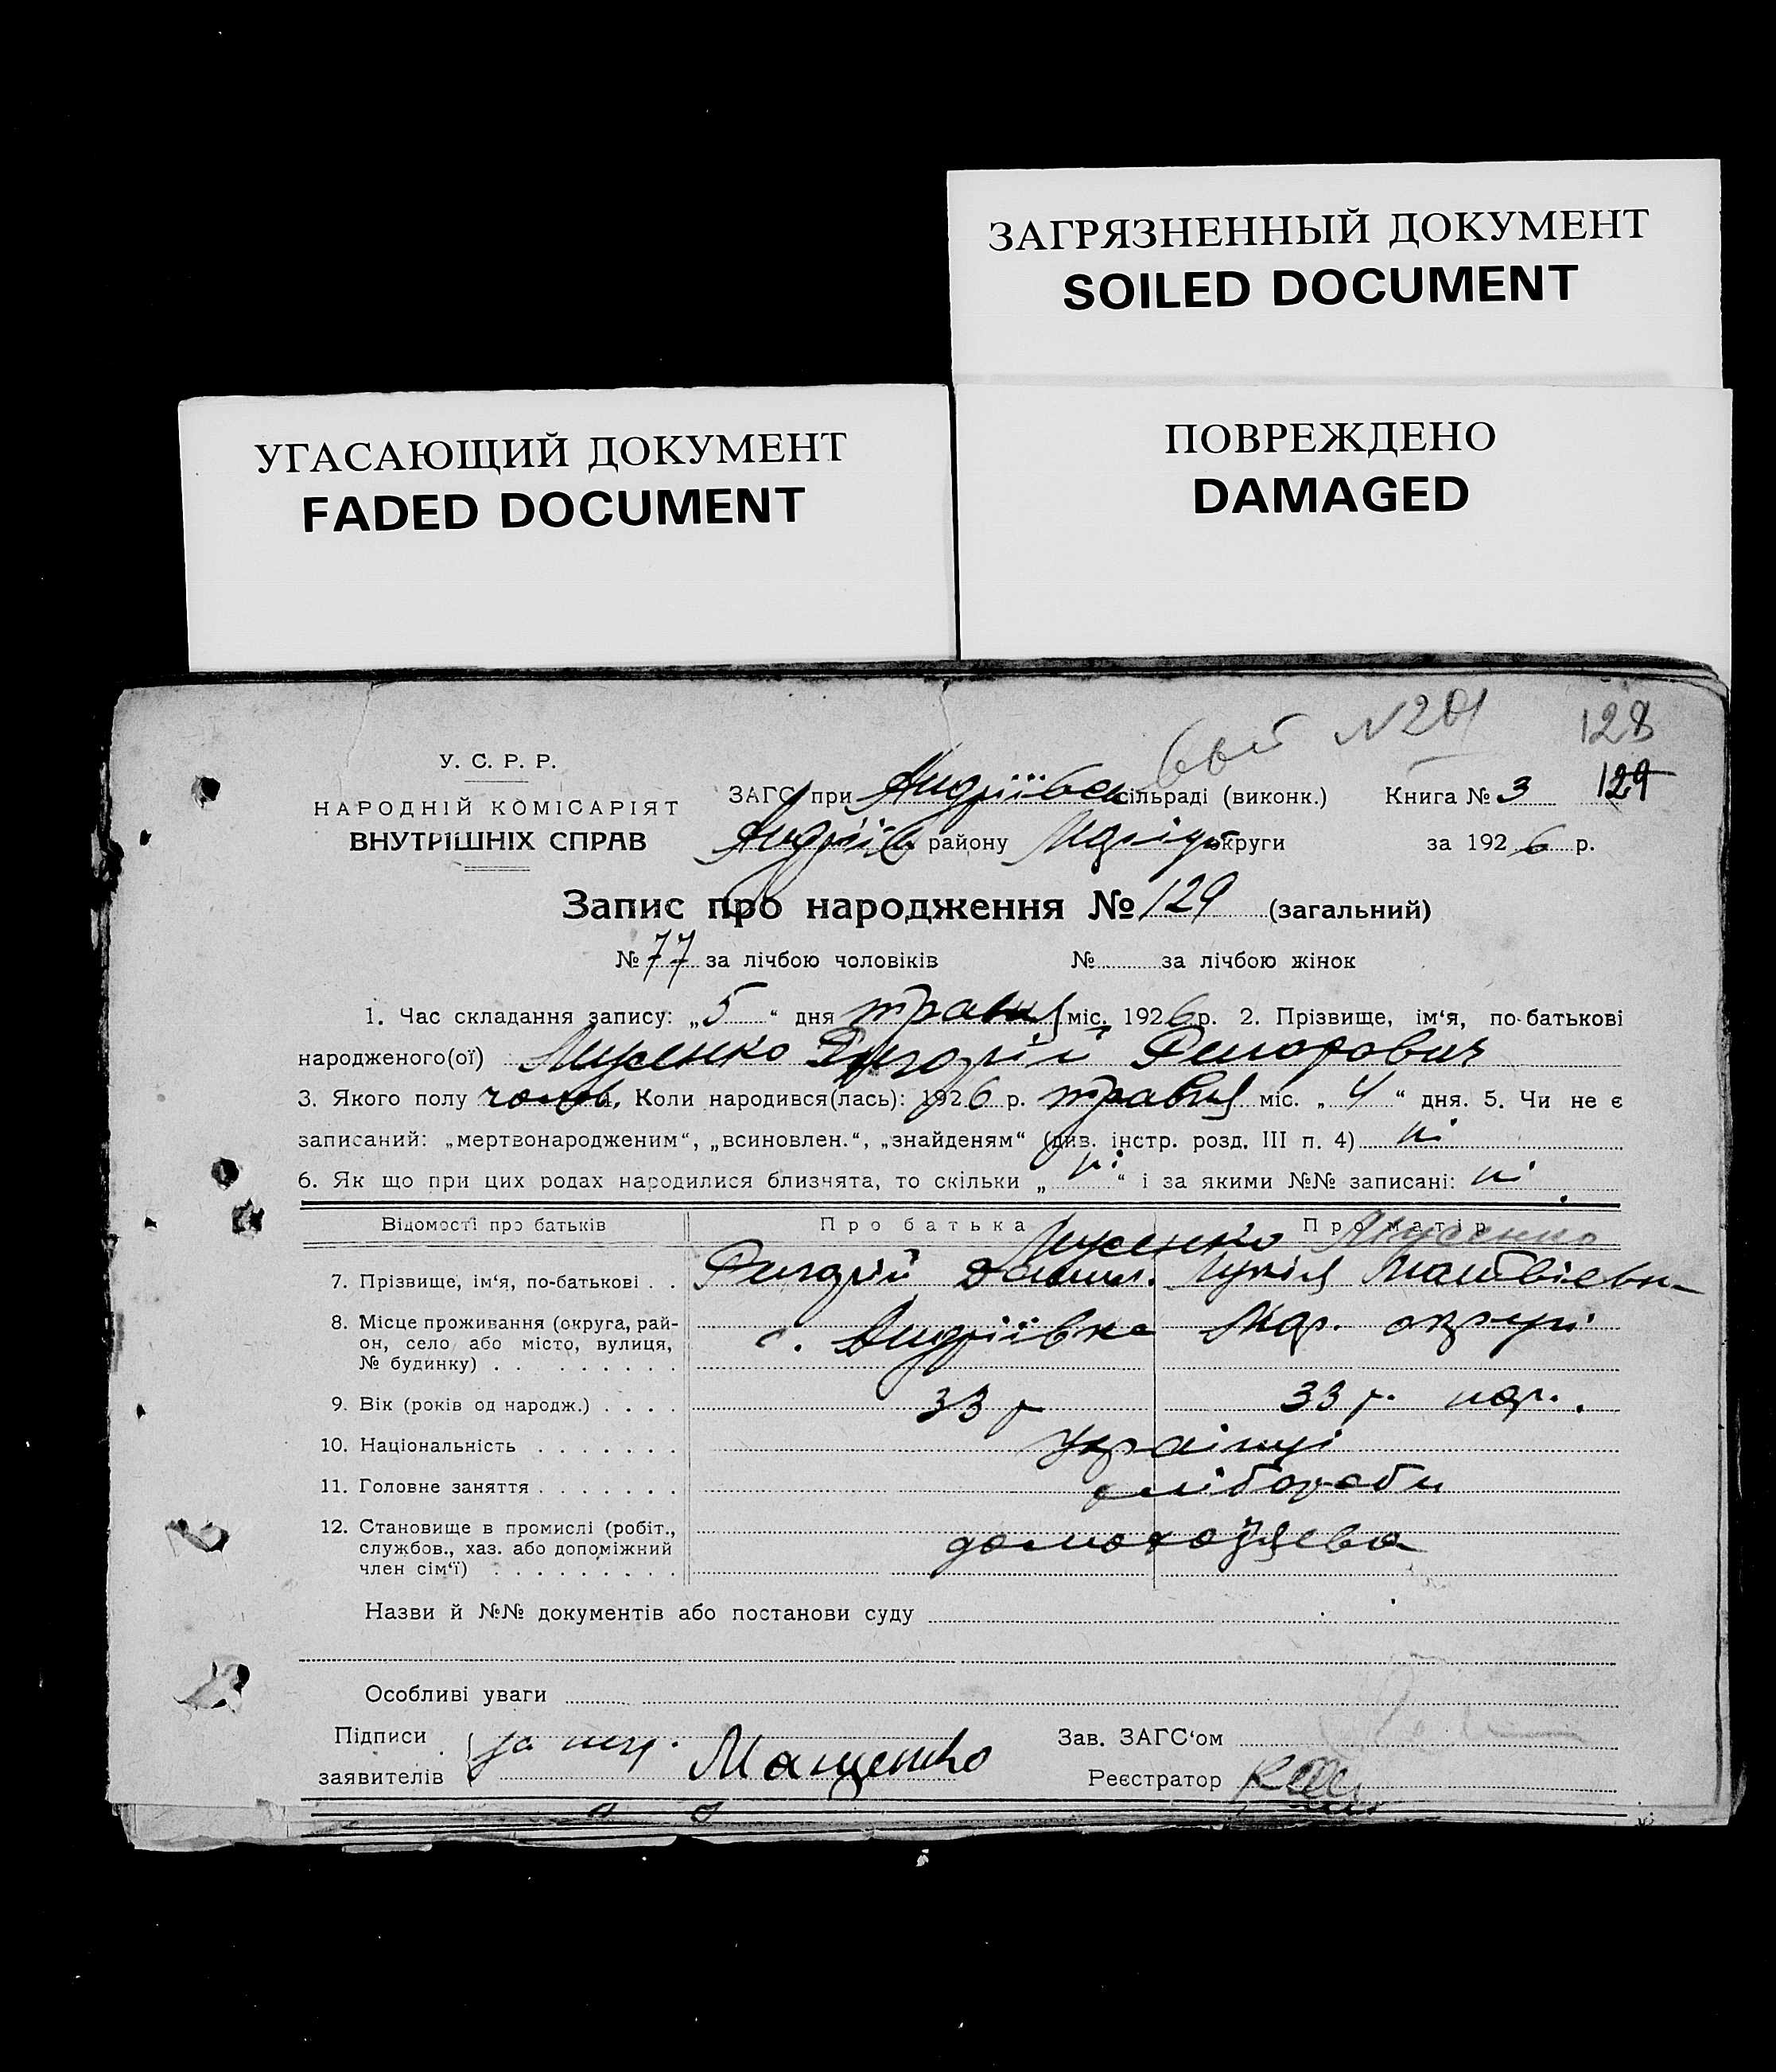 ЗАГРЯЗНЕННЫЙ ДОКУМЕНТ
SOILED DOCUMENT
УГАСАЮЩИЙ ДОКУМЕНТ
FADED DOCUMENT
ПОВРЕЖДЕНО
DAMAGED
№201 128
У. С. Р. Р.
НАРОДНІЙ КОМІСАРІЯТ
ВНУТРІШНІХ СПРАВ
ЗАГС при Андріївськ сільраді (виконк.) Книга № 3 129
Андріїв району Маріуп округи за 1926 р.
Запис про народження № 129 (загальний)
№ 77 за лічбою чоловіків № за лічбою жінок
1. Час складання запису: „5“ дня травня міс. 1926 р. 2. Прізвище, ім‘я, по-батькові
народженого(ої) Лисенко Григорій
3. Якого полу чолов. 4. Коли народився(лась): 1926 р. травня міс. „4“ дня. 5. Чи не є
записаний: „мертвонародженим“, „всиновлен.“, „знайденям“ (див. інстр. розд. III п. 4) ні
6. Як що при цих родах народилися близнята, то скільки „ні“ і за якими №№ записані: ні
Відомості про батьків Про батька Про матір
Лисенко
7. Прізвище, ім‘я, по-батькові . . Данил. Лукія Матвієвн
8. Місце проживання (округа, рай-
он, село або місто, вулиця,
№ будинку) . . . . . . . . .
с. Андріївка Мар. округи
9. Вік (років од народж.) . . . . 33 р 33 р. нар.
10. Національність . . . . . . . Українці
11. Головне заняття . . . . . . . хлібороби
12. Становище в промислі (робіт.,
службов., хаз. або допоміжний
член сім‘ї) . . . . . . . . .
Назви й №№ документів або постанови суду
Особливі уваги
Підписи
заявителів
за неп. Мащенко
Зав. ЗАГС‘ом
Реєстратор